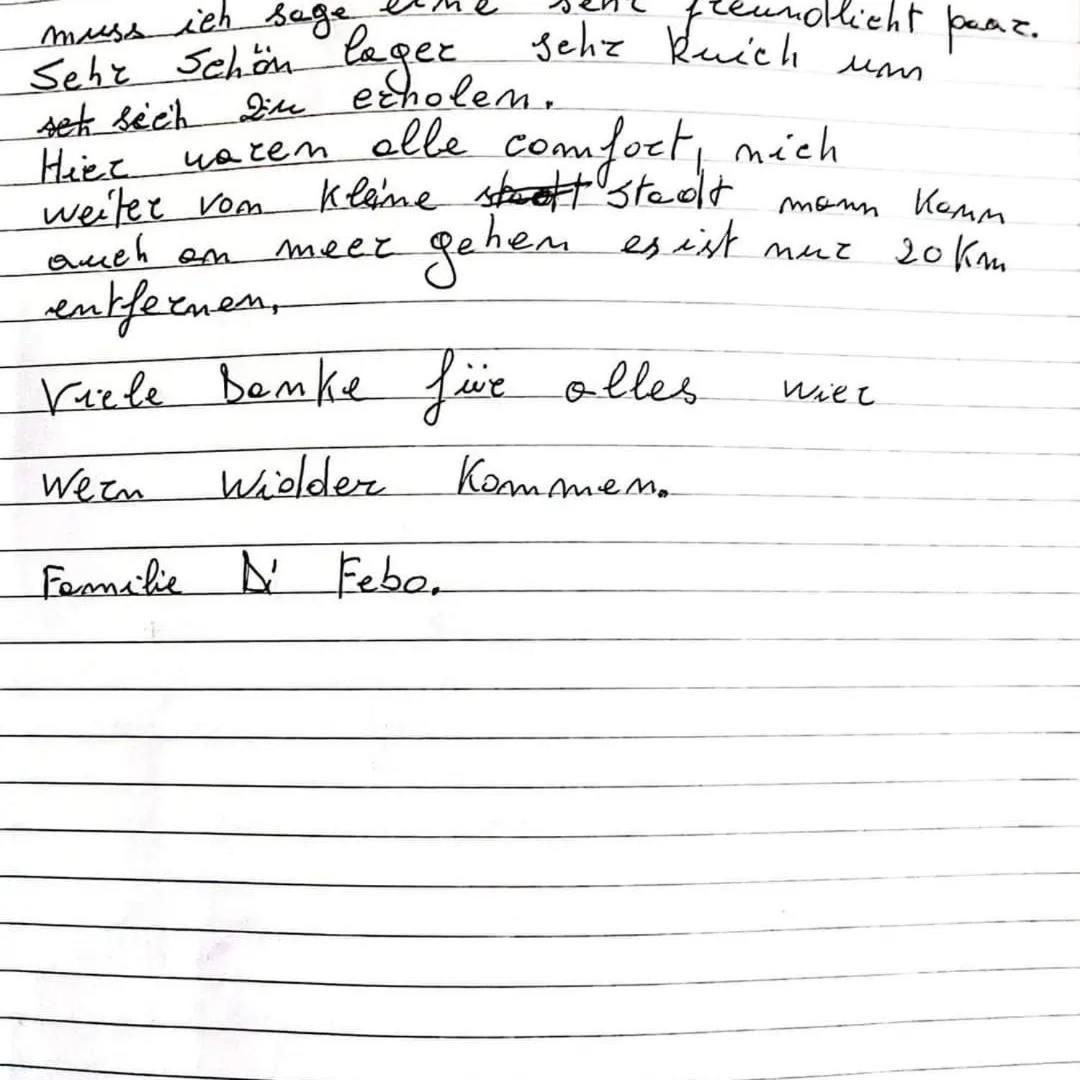 muss ich sage eine sehr freundlicht paar.
Sehr Schön lager sehr Ruich um
set sich zu erholen.
Hier waren alle comfort, nich
weiter vom kleine stadt stadt mann kann
auch an meer gehen es ist nur 20 Km
entfernen,
Viele Danke für alles wier
wern widder kommen.
Familie Di Febo.